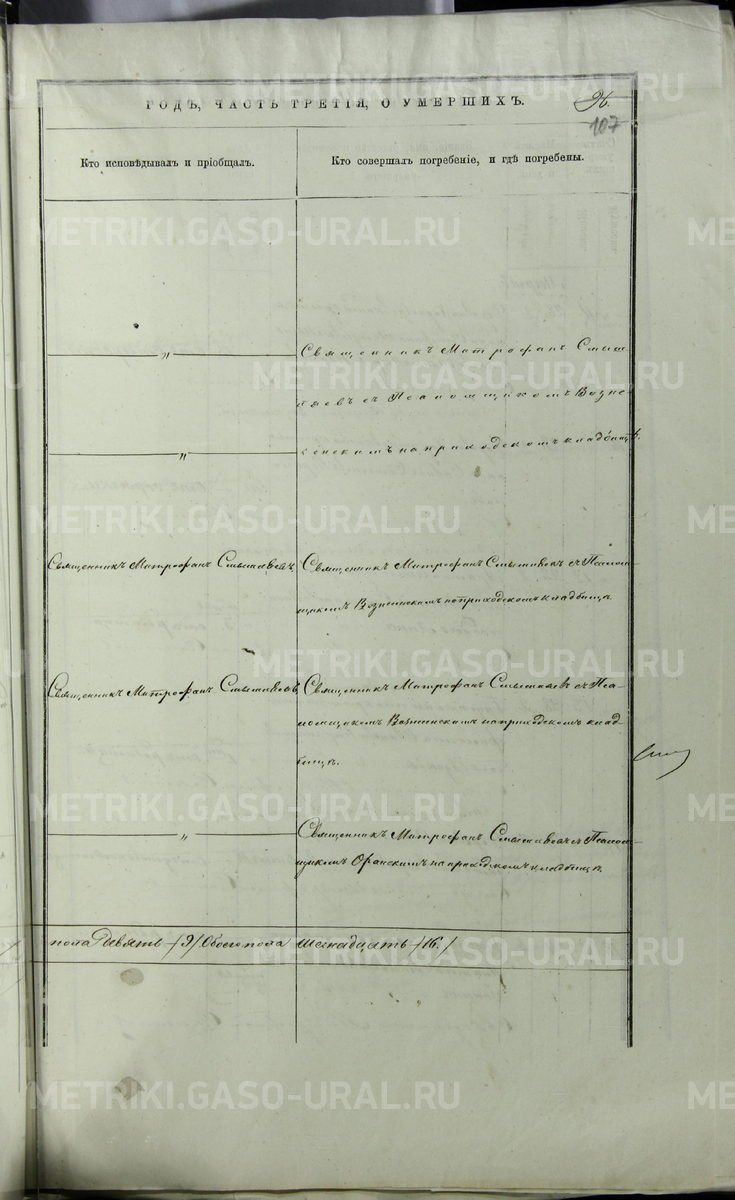 ГОДЪ, ЧАСТЬ ТРЕТІЯ, О УМЕРШИХЪ.
96.
107
Кто исповѣдывалъ и пріобщалъ.
Кто совершалъ погребеніе, и гдѣ погребены.
METRIKI.GASO-URAL.RU
„
Священникъ Митрофанъ Смыш
ляевъ съ Псаломщикомъ Вознe-
„
сенскимъ на приходскомъ кладбищѣ.
Священникъ Митрофанъ Смышляевъ,
Священникъ Митрофанъ Смышляевъ съ Псалом-
щикомъ Вознесенскимъ на приходскомъ кладбищѣ.
Священникъ Митрофанъ Смышляевъ,
Священникъ Митрофанъ Смышляевъ съ Пса-
ломщикомъ Вознесенскимъ на приходскомъ клад-
бищѣ.
„
Священникъ Митрофанъ Смышляевъ съ Псалом-
щикомъ на приходскомъ кладбищѣ.
пола Девять /9/ Обоего пола шестнадцать /16./